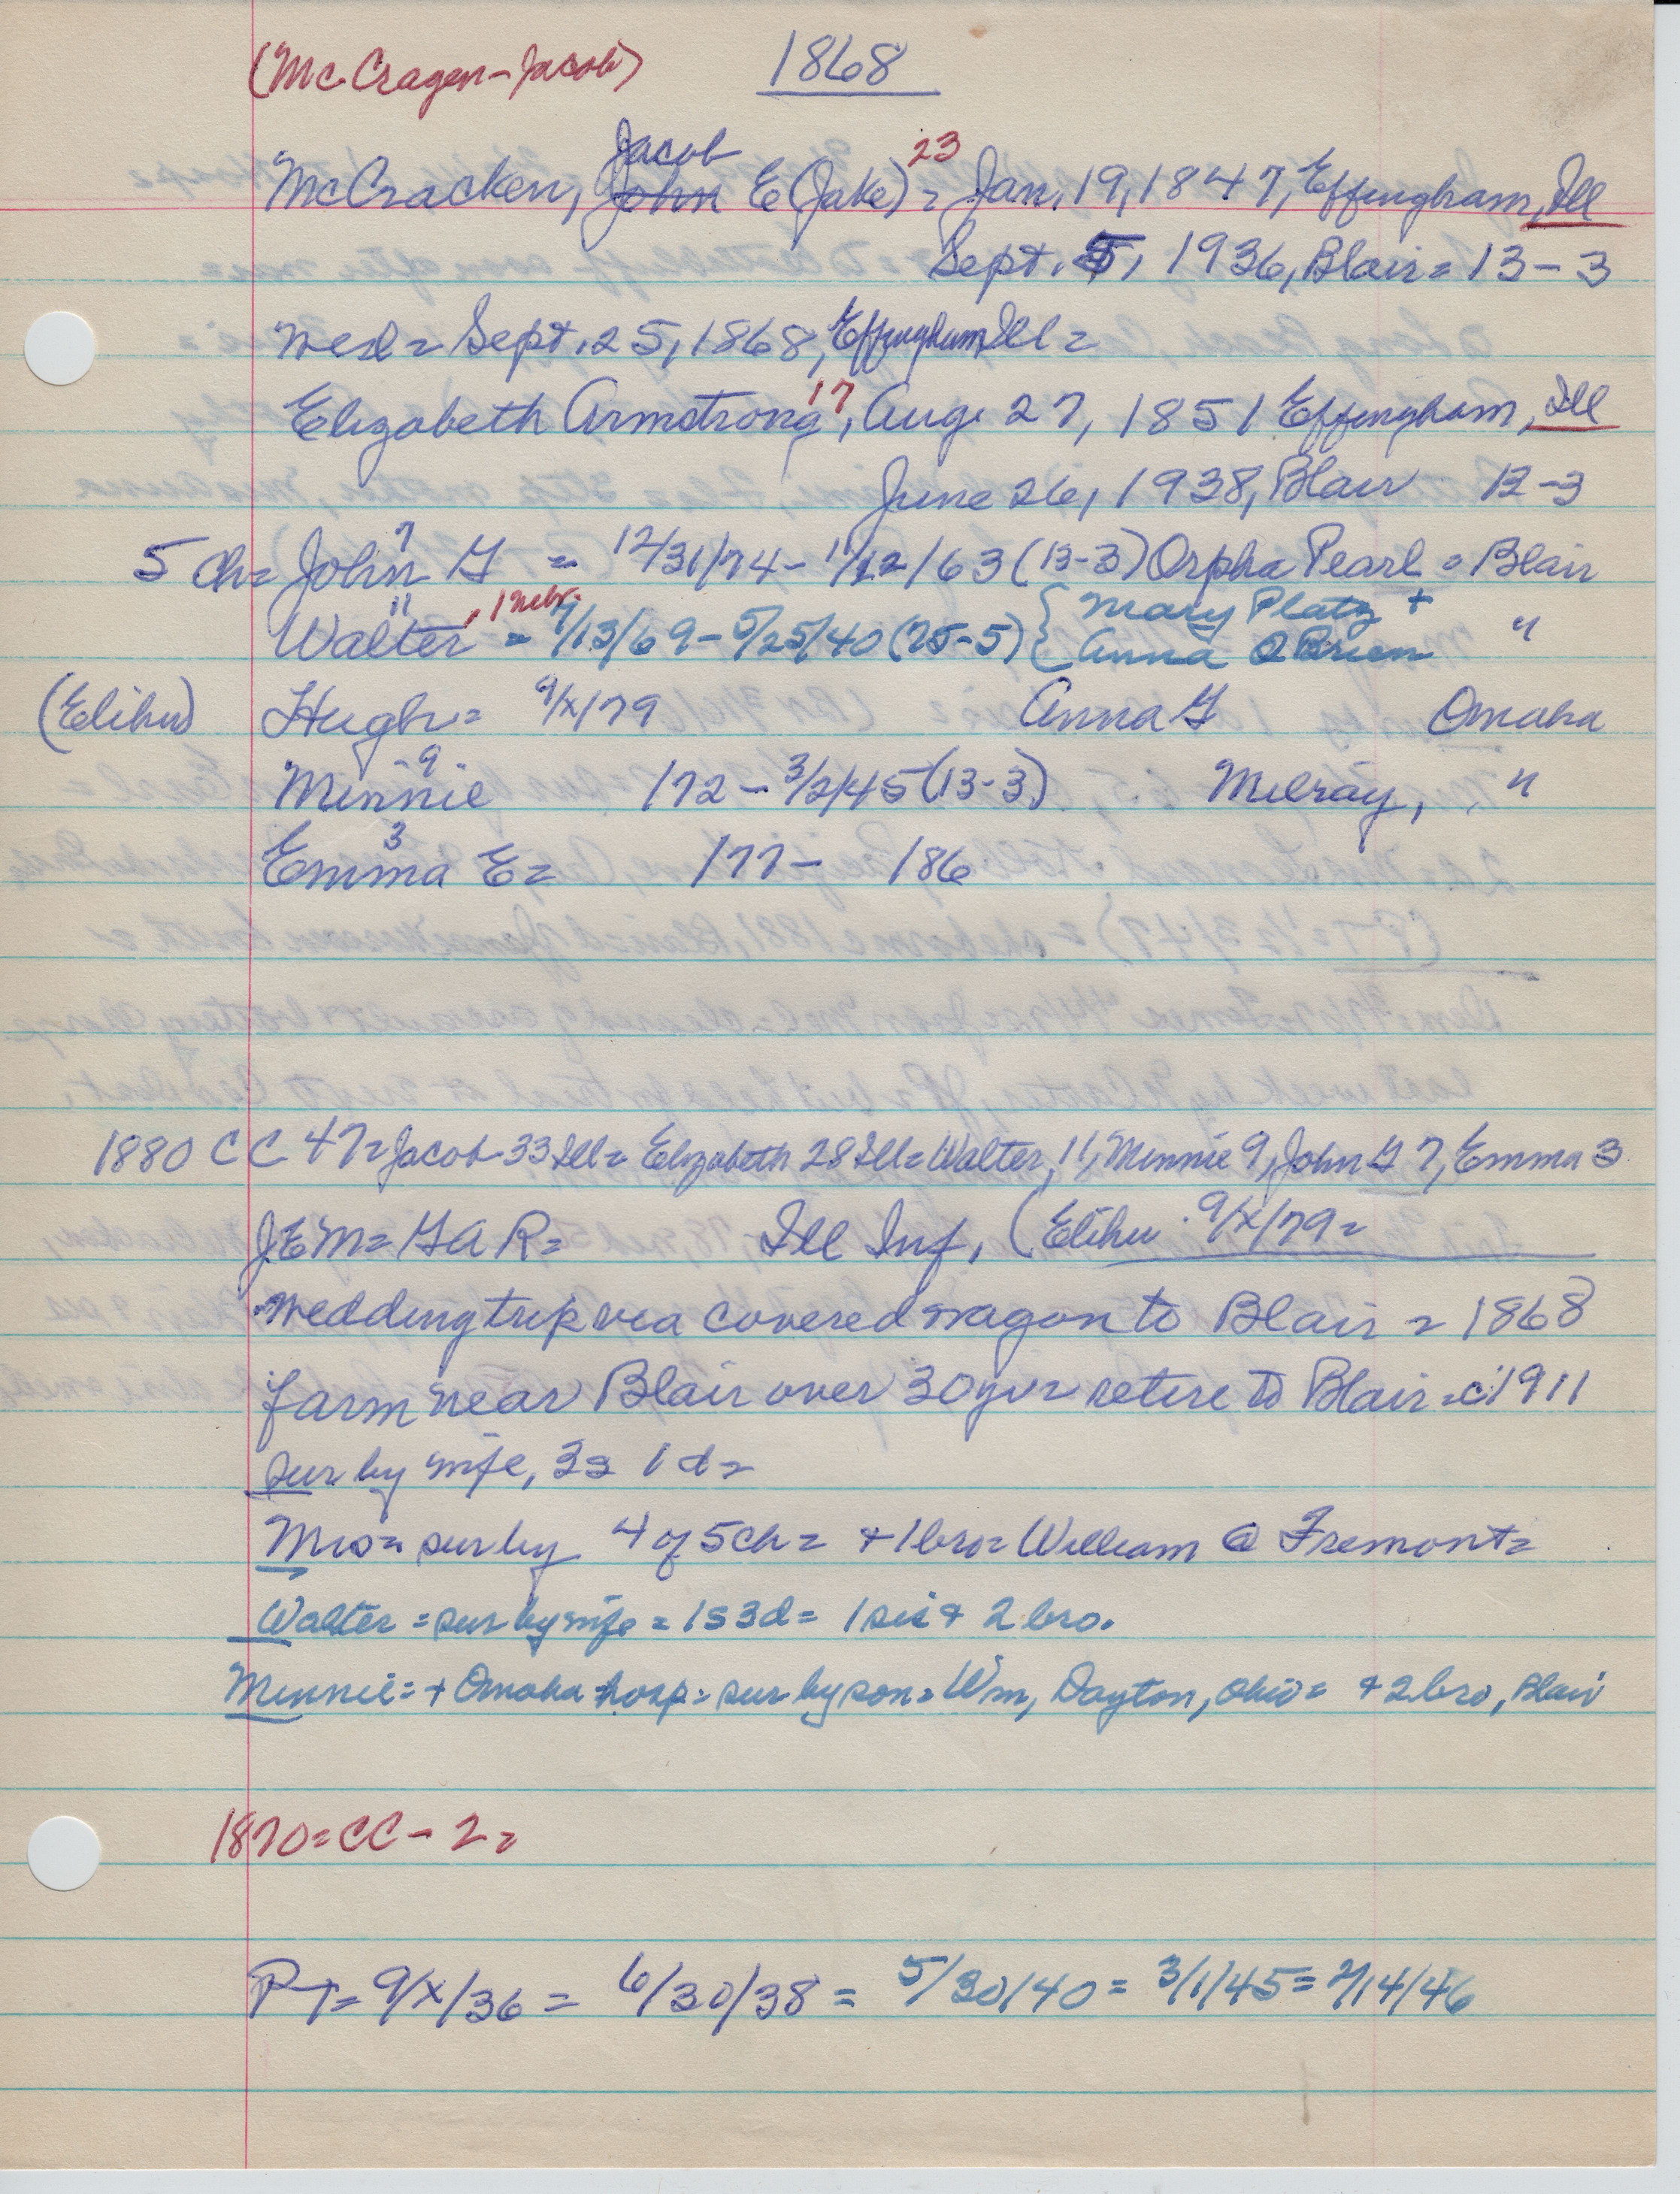 (McCragen-Jacob) 1868
Jacob 23
McCracken, John E (Jake) = Jan. 19, 1847, Effingham, Ill
Sept. 5, 1936, Blair = 13-3
wed = Sept. 25, 1868, Effingham Ill =
Elizabeth Armstrong 17, Aug. 27, 1851 Effingham, Ill
June 26, 1938, Blair 13-3
5 ch = John G 7 = 12/31/74 - 11/12/63 (13-3) Orpha Pearl = Blair
Walter 11, 1 Nebr. = 9/13/69 - 5/25/40 (25-5) { Mary Platz + "
{ Anna O Brien
(Elihu) Hugh = 9/x/79 Anna G Omaha
Minnie 9 /72 - 3/2/45 (13-3) Milray, "
Emma E = 3 /77 - /86
1880 CC 47 = Jacob 33 Ill = Elizabeth 28 Ill = Walter, 11, Minnie 9, John G 7, Emma 3
JEM = GAR = Ill Inf, (Elihu 9/x/79 =
wedding trip via covered wagon to Blair = 1868)
farm near Blair over 30 yr = retire to Blair = c 1911
sur by wife, 3s 1d =
Mrs = sur by 4 of 5 ch = + 1 bro = William @ Fremont =
Walter = sur by wife = 1s 3d = 1 sis + 2 bro.
Minnie = + Omaha hosp = sur by son = Wm, Dayton, Ohio = + 2 bro, Blair
1870 = CC - 2 =
PT = 9/x/36 = 6/30/38 = 5/30/40 = 3/1/45 = 2/14/46